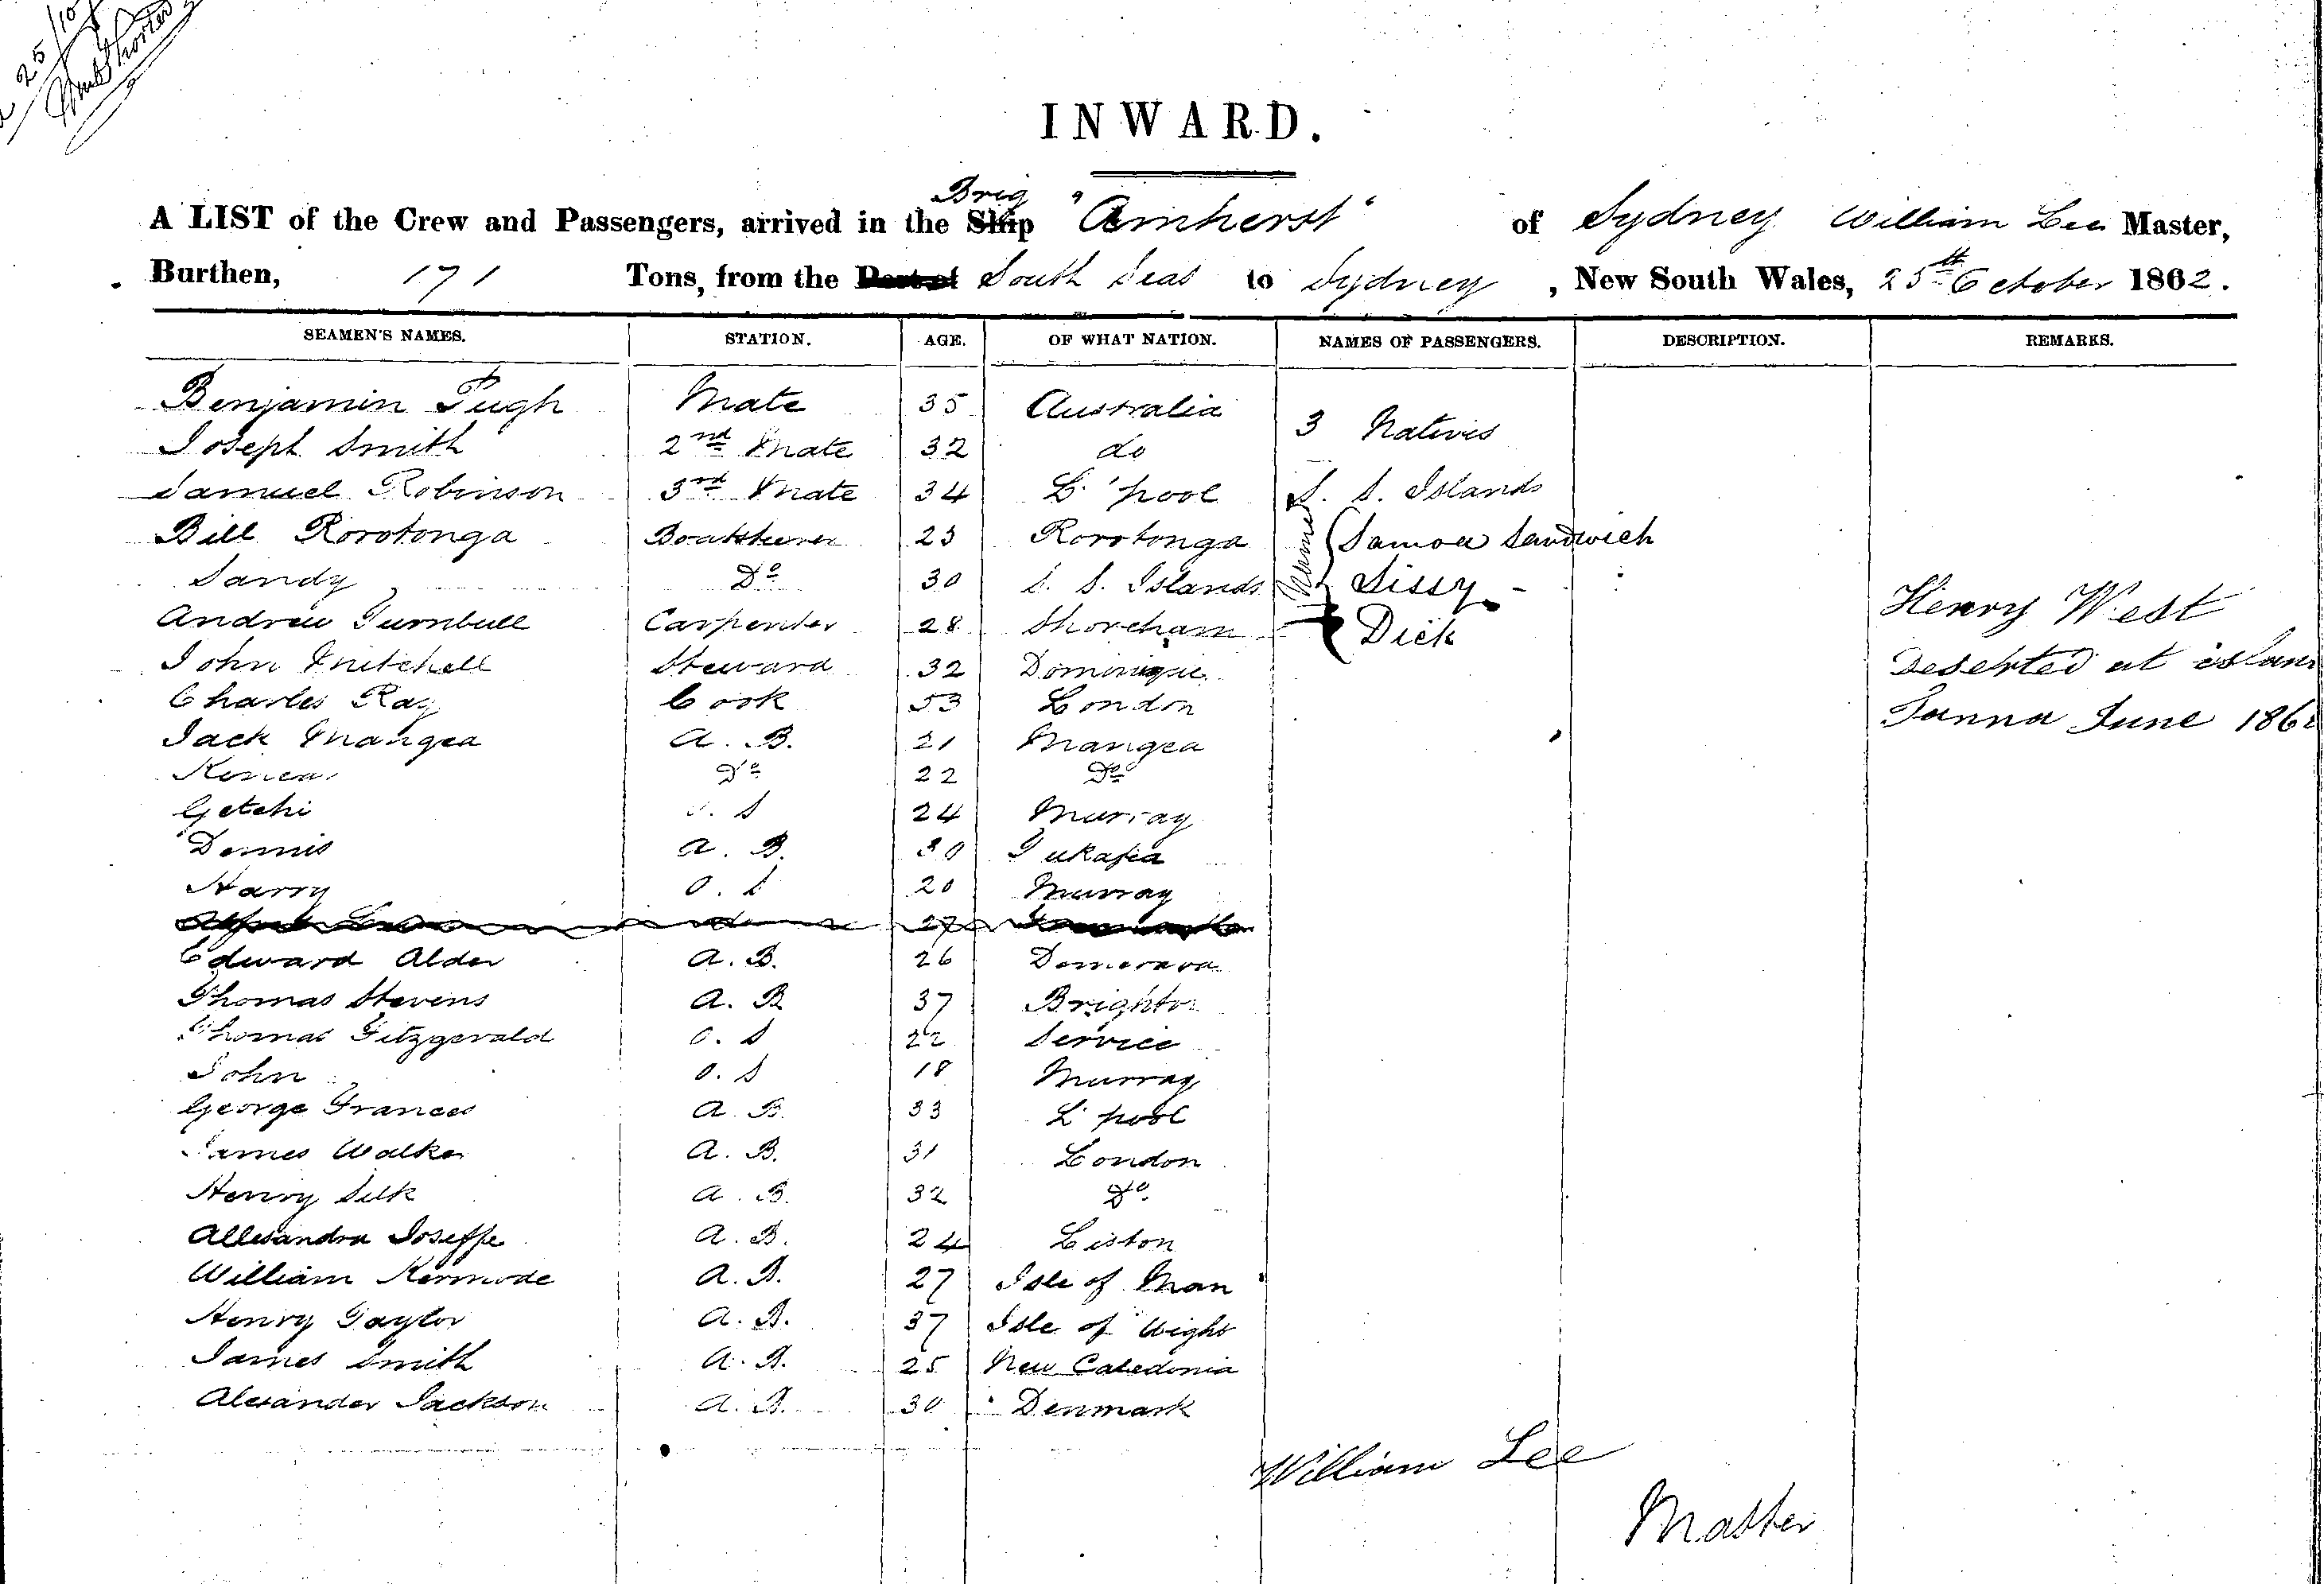 25/10
INWARD.
Brig
A LIST of the Crew and Passengers, arrived in the Ship "Amherst" of Sydney William Lee Master,
Burthen, 171 Tons, from the Port of South Seas to Sydney, New South Wales, 25th October 1862.
SEAMEN'S NAMES. STATION. AGE. OF WHAT NATION. NAMES OF PASSENGERS. DESCRIPTION. REMARKS.
Benjamin Pugh Mate 35 Australia
3 Natives
Joseph Smith 2nd Mate 32 do
Samuel Robinson 3rd Mate 34 L'pool S. S. Islands
Bill Rorotonga Boatsteerer 25 Rorotonga Names Samoa Sandwich
Sandy Do 30 S. S. Islands Sissy -
Henry West
Andrew Turnbull Carpenter 28 Shoreham Dick
John Mitchell Steward 32 Dominique
Deserted at islan
Charles Ray Cook 53 London
Tanna June 186
Jack Mangea A. B. 21 Mangea
Do 22 Do
Getchi S 24 Murray
Dennis A. B. 30
Harry O. S 20 Murray
27
Edward Alder A. B. 26 Demerara
Thomas Stevens A. B 37 Brighton
Thomas Fitzgerald O. S 22 Service
John O. S 18 Murray
George Frances A. B. 33 L'pool
James Walker A. B. 31 London
Henry Silk A. B. 32 Do.
Allesandra Joseffe A. B. 24 Liston
William Kermode A. B. 27 Isle of Man
Henry Taylor A. B. 37 Isle of Wight
James Smith A. B. 25 New Caledonia
Alexander Jackson A. B. 30 Denmark
William Lee
Master